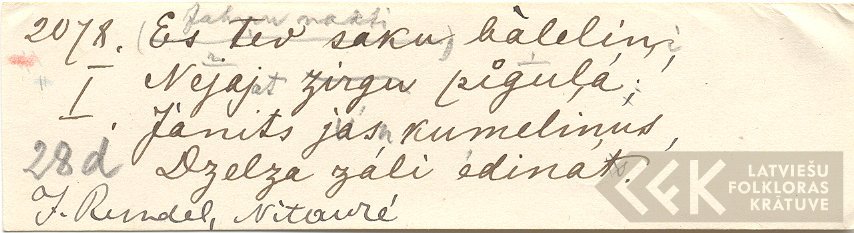 Jahņu nakti
2078. (Es tev saku,) bāleliņi,
I Nejaj at zirgu pīgulā;
Jānits jās kumeliņus,
28d Dzelza zāli ēdināt.
J. Rundel, Nitaurē
LFK
LATVIEŠU
FOLKLORAS
KRĀTUVE